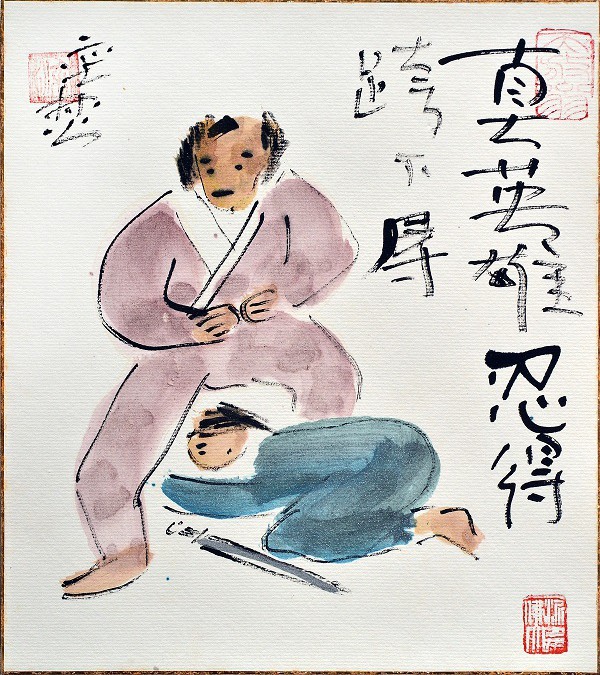 真英雄忍得
跨下辱